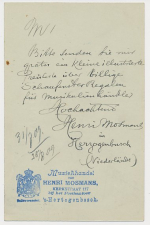 M/
Bitte senden Sie mir
gratis ein Kleine illustrierte
Preisliste über billige
Schaufenster Regalen
für Musikalienhandler
Hochachtend
Henri Mosmans
Herzogenbusch
(Niederlande)
Muziekhandel
VAN
HENRI MOSMANS,
's-Hertogenbosch.